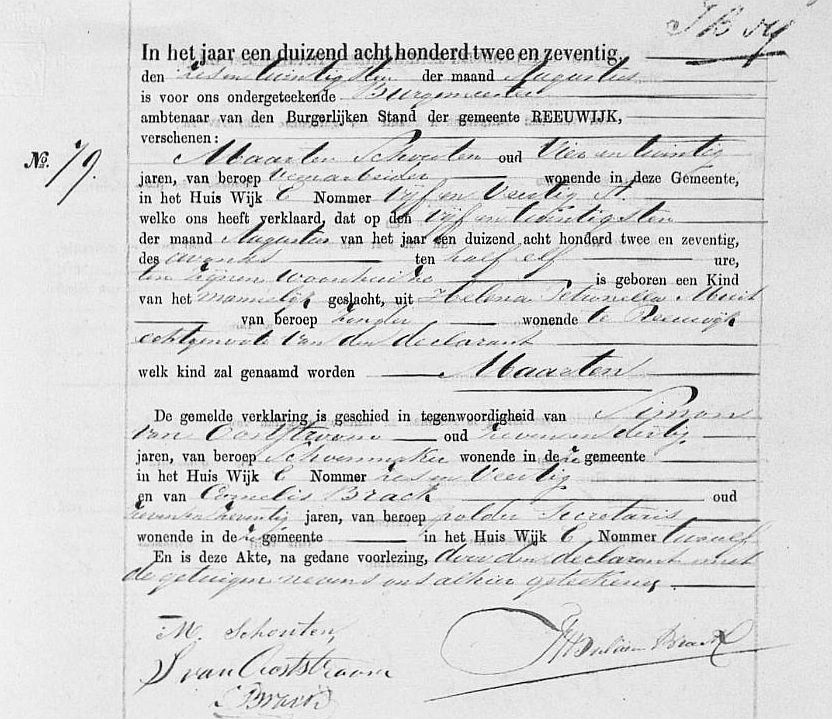 In het jaar een duizend acht honderd twee en zeventig,
den zes en twintigsten der maand Augustus
is voor ons ondergeteekende Burgemeester
ambtenaar van den Burgerlijken Stand der gemeente REEUWIJK,
verschenen:
No. 79.
Maarten Schouten oud Vier en twintig
jaren, van beroep veenarbeider wonende in deze Gemeente,
in het Huis Wijk C Nommer Vijf en Veertig
welke ons heeft verklaard, dat op den Vijf en twintigsten
der maand Augustus van het jaar een duizend acht honderd twee en zeventig,
des avonds ten half elf ure,
ten zijnen woonhuize is geboren een Kind
van het mannelijk geslacht, uit Helena Petronella
van beroep zonder wonende te Reeuwijk
echtgenoote van den declarant
welk kind zal genaamd worden Maarten
De gemelde verklaring is geschied in tegenwoordigheid van Simon
van Ooststroom oud zeven en dertig
jaren, van beroep Schoenmaker wonende in deze gemeente
in het Huis Wijk C Nommer zes en Veertig
en van Cornelis Brack oud
zeventig jaren, van beroep polder Secretaris
wonende in deze gemeente in het Huis Wijk C Nommer twaalf
En is deze Akte, na gedane voorlezing, door den declarant met
de getuigen nevens ons alhier geteekend
M. Schouten,
S van Ooststroom
C Brack
Brack